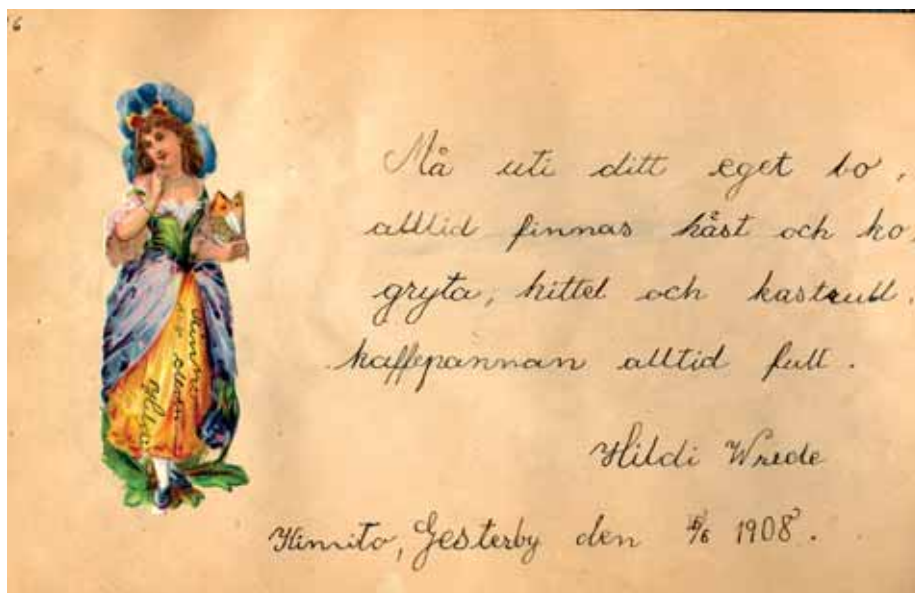 Må uti ditt eget bo,
alltid finnas häst och ko,
gryta, kittel och kastrull,
kaffepannan alltid full.
Hildi Wrede
Kimito, Gesterby den 1908.